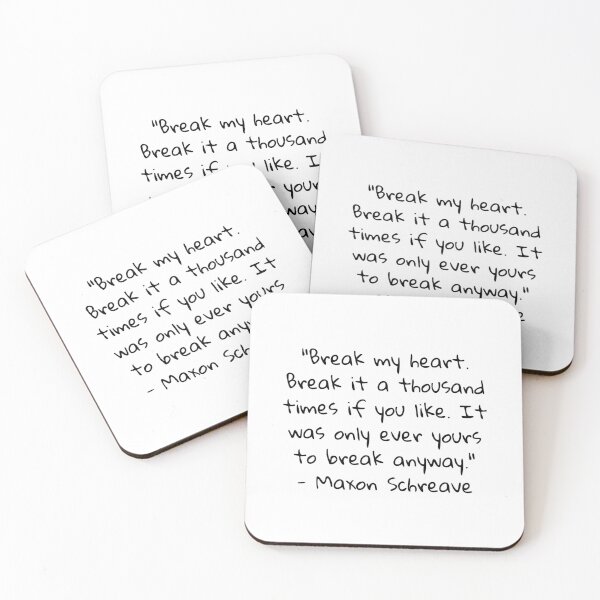 "Break my heart.
Break it a thousand
times if you like.
"Break my heart.
Break it a thousand
times if you like. It
was only ever yours
to break anyway."
"Break my heart.
Break it a thousand
times if you like. It
was only ever yours
to break
- Maxon
"Break my heart.
Break it a thousand
times if you like. It
was only ever yours
to break anyway."
- Maxon Schreave